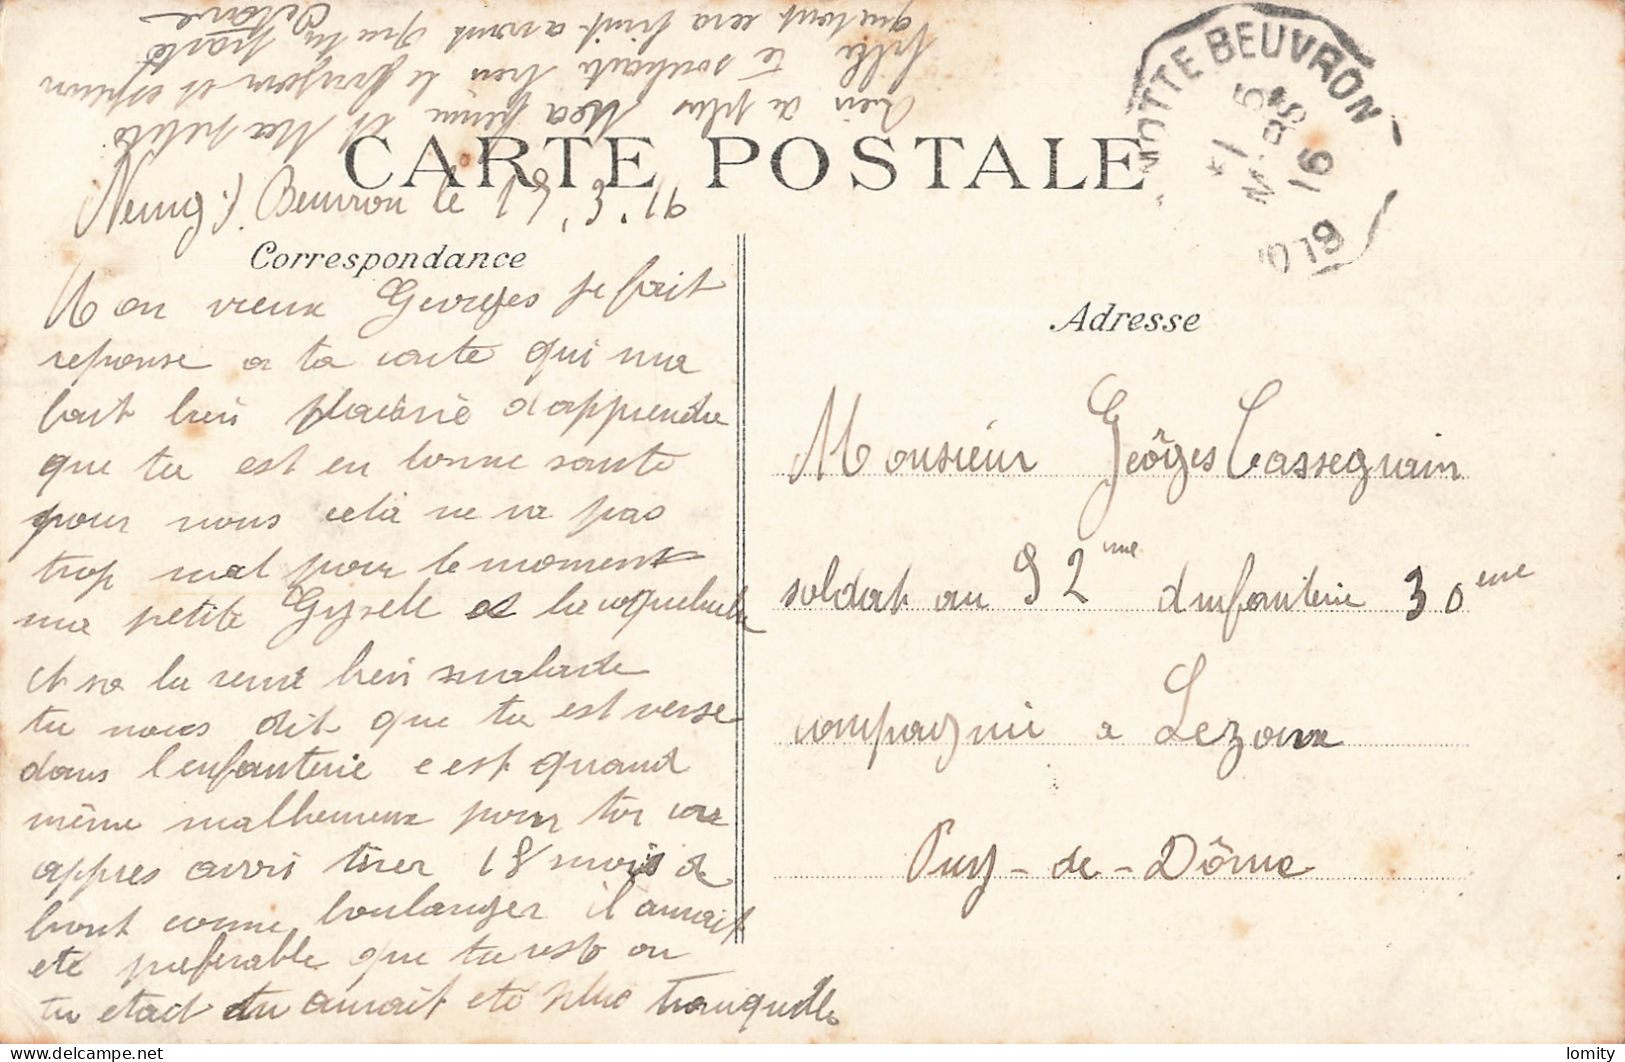 MOTTE BEUVRON
15
MARS
16
CARTE POSTALE
Neung s. Beuvron le 15.3.16
Correspondance
Mon vieux Georges je fait
reponse a ta carte qui ma
fait bien plaisire d'apprendre
que tu est en bonne sante
pour nous cela ne va pas
trop mal pour le moment
ma petite Gysele a la coqueluche
et sa la rend bien malade
tu nous dit que tu est verse
dans l'enfanterie c est quand
même malheureux pour toi car
appres avoir tirer 18 mois de
front comme boulanger il aurait
ete preferable que tu reste ou
tu etait tu aurait ete plus tranquille
rien a plus Ma femme et Ma petite
fille te souhaite bien le bonjour et esperon
que tout sera finit avant que tu parte
Octave
Adresse
Monsieur Geôrges Cassegrain
soldat au 92 eme d'infanterie 30 eme
compagnie a Lezoux
Puy-de-Dôme
lomity